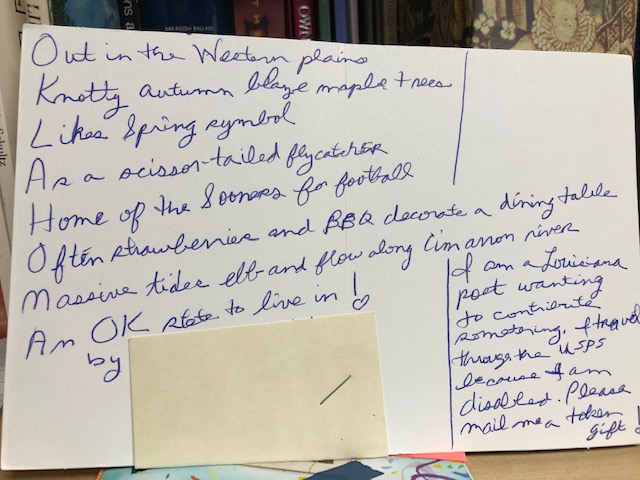 Out in the Western plains
Knotty autumn blaze maple trees
Likes Spring symbol
As a scissor-tailed flycatcher
Home of the Sooners for football
Often strawberries and BBQ decorate a dining table
Massive tides ebb and flow along Cimarron river
An OK state to live in! ♡
by
I am a Louisiana
poet wanting
to contribute
something. I travel
through the USPS
because I am
disabled. Please
mail me a token
gift!
Schultz
BAR-ROOM BALLADS
OWN